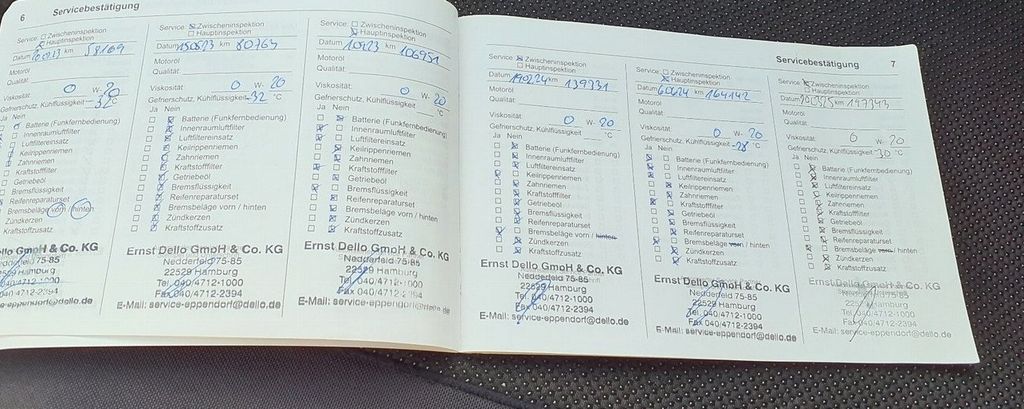 6 Servicebestätigung
Service: Zwischeninspektion
Hauptinspektion
Datum km
Motoröl
Qualität:
Viskosität 0 W- 20
Gefrierschutz, Kühlflüssigkeit °C
Ja Nein
Batterie (Funkfernbedienung)
Innenraumluftfilter
Luftfiltereinsatz
Keilrippenriemen
Zahnriemen
Kraftstofffilter
Getriebeöl
Bremsflüssigkeit
Reifenreparaturset
Bremsbeläge vorn / hinten
Zündkerzen
Kraftstoffzusatz
& Co. KG
Nedderfeld 75-85
Hamburg
040/4712-1000
040/4712-2394
Service: Zwischeninspektion
Hauptinspektion
Datum km 80763
Motoröl
Qualität:
Viskosität 0 W- 20
Gefrierschutz, Kühlflüssigkeit -32 °C
Ja Nein
Batterie (Funkfernbedienung)
Innenraumluftfilter
Luftfiltereinsatz
Keilrippenriemen
Zahnriemen
Kraftstofffilter
Getriebeöl
Bremsflüssigkeit
Reifenreparaturset
Bremsbeläge vorn / hinten
Zündkerzen
Kraftstoffzusatz
Ernst Dello GmbH & Co. KG
Nedderfeld 75-85
22529 Hamburg
Tel. 040/4712-1000
Fax 040/4712-2394
E-Mail: service-eppendorf@dello.de
Service: Zwischeninspektion
Hauptinspektion
Datum km 106951
Motoröl
Qualität:
Viskosität 0 W- 20
Gefrierschutz, Kühlflüssigkeit °C
Ja Nein
Batterie (Funkfernbedienung)
Innenraumluftfilter
Luftfiltereinsatz
Keilrippenriemen
Zahnriemen
Kraftstofffilter
Getriebeöl
Bremsflüssigkeit
Reifenreparaturset
Bremsbeläge vorn / hinten
Zündkerzen
Kraftstoffzusatz
Ernst Dello GmbH & Co. KG
Nedderfeld 75-85
22529 Hamburg
Tel. 040/4712-1000
Fax 040/4712-2394
E-Mail: service-eppendorf@dello.de
Servicebestätigung 7
Service: Zwischeninspektion
Hauptinspektion
Datum 190224 km 139331
Motoröl
Qualität:
Viskosität 0 W- 20
Gefrierschutz, Kühlflüssigkeit °C
Ja Nein
Batterie (Funkfernbedienung)
Innenraumluftfilter
Luftfiltereinsatz
Keilrippenriemen
Zahnriemen
Kraftstofffilter
Getriebeöl
Bremsflüssigkeit
Reifenreparaturset
Bremsbeläge vorn / hinten
Zündkerzen
Kraftstoffzusatz
Ernst Dello GmbH & Co. KG
Nedderfeld 75-85
22529 Hamburg
Tel. 040/4712-1000
Fax 040/4712-2394
E-Mail: service-eppendorf@dello.de
Service: Zwischeninspektion
Hauptinspektion
Datum km 164142
Motoröl
Qualität:
Viskosität 0 W- 20
Gefrierschutz, Kühlflüssigkeit -28 °C
Ja Nein
Batterie (Funkfernbedienung)
Innenraumluftfilter
Luftfiltereinsatz
Keilrippenriemen
Zahnriemen
Kraftstofffilter
Getriebeöl
Bremsflüssigkeit
Reifenreparaturset
Bremsbeläge vorn / hinten
Zündkerzen
Kraftstoffzusatz
Ernst Dello GmbH & Co. KG
Nedderfeld 75-85
22529 Hamburg
Tel. 040/4712-1000
Fax 040/4712-2394
E-Mail: service-eppendorf@dello.de
Service: Zwischeninspektion
Hauptinspektion
Datum km
Motoröl
Qualität:
Viskosität 0 W- 20
Gefrierschutz, Kühlflüssigkeit 30 °C
Ja Nein
Batterie (Funkfernbedienung)
Innenraumluftfilter
Luftfiltereinsatz
Keilrippenriemen
Zahnriemen
Kraftstofffilter
Getriebeöl
Bremsflüssigkeit
Reifenreparaturset
Bremsbeläge vorn / hinten
Zündkerzen
Kraftstoffzusatz
Ernst Dello GmbH & Co. KG
Hamburg
Tel. 040/4712-1000
Fax 040/4712-2394
E-Mail: service-eppendorf@dello.de